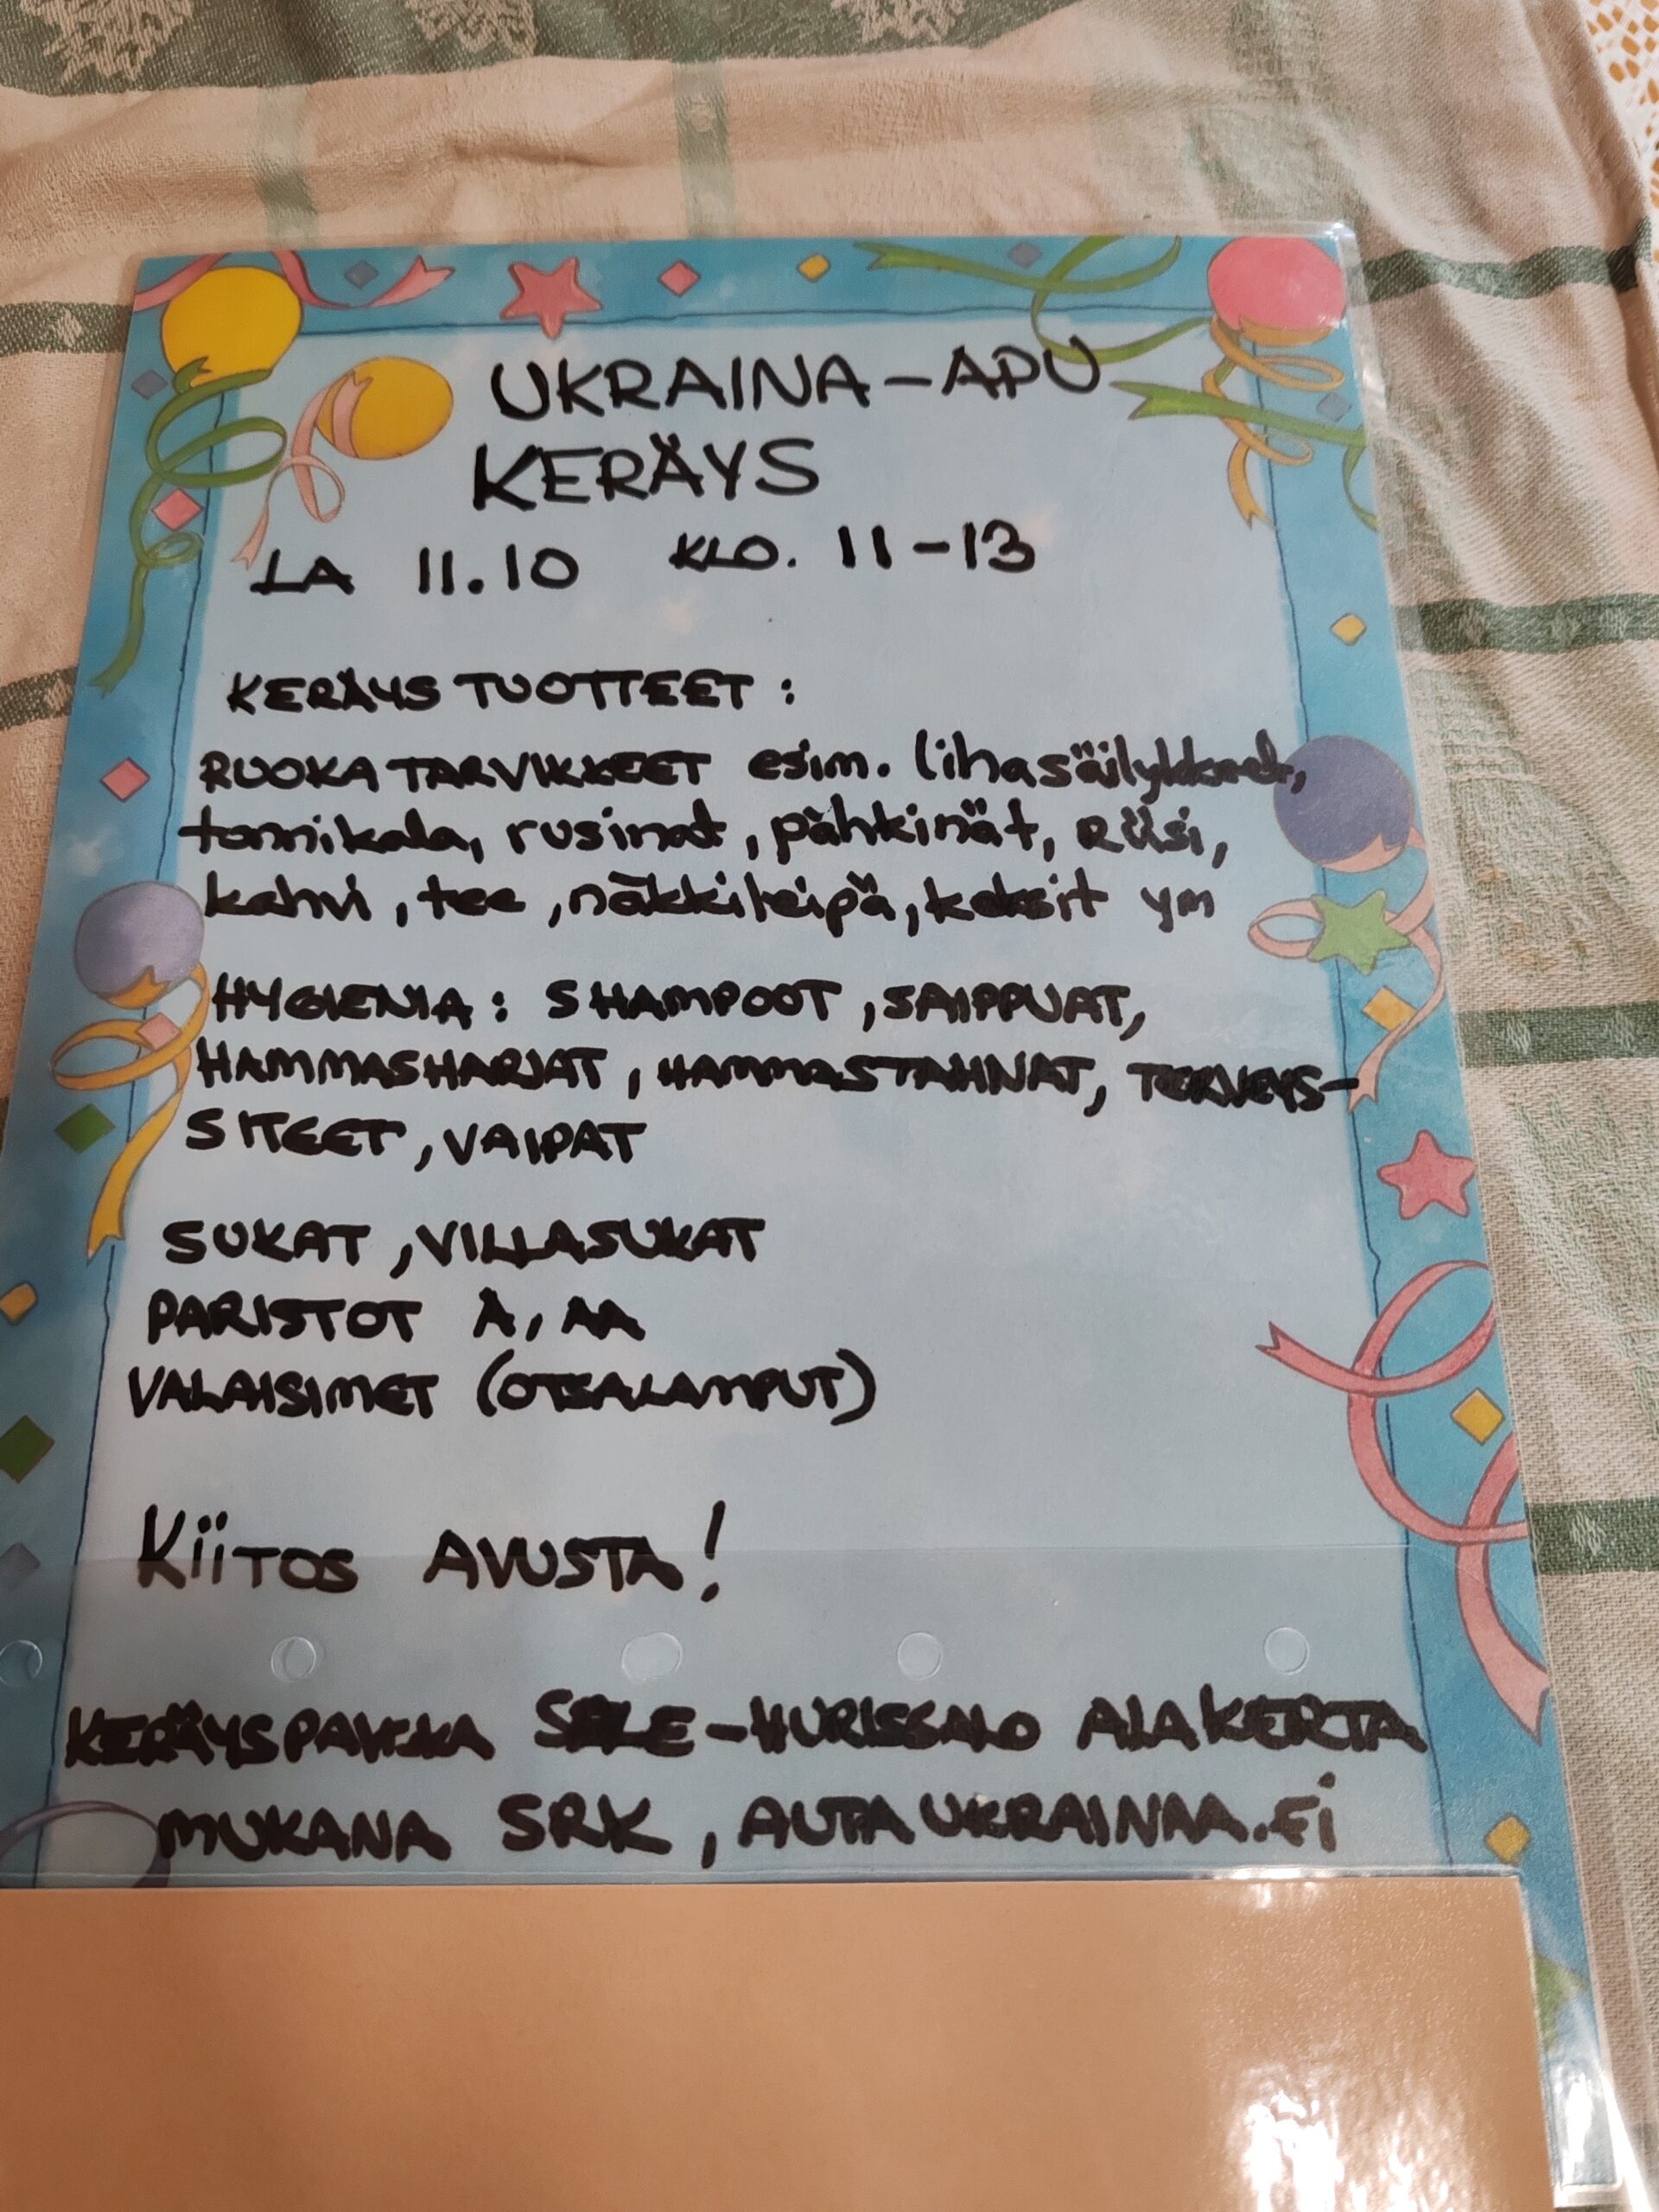 UKRAINA-APU
KERÄYS
LA 11.10 KLO. 11-13
KERÄYSTUOTTEET:
RUOKATARVIKKEET esim. lihasäilykkeet,
tonnikala, rusinat, pähkinät, Riisi,
kahvi, tee, näkkileipä, keksit ym
HYGIENIA: SHAMPOOT, SAIPPUAT,
HAMMASHARJAT, HAMMASTAHNAT, TERVEYS-
SITEET, VAIPAT
SUKAT, VILLASUKAT
PARISTOT A, AA
VALAISIMET (OTSALAMPUT)
KiiTOS AVUSTA!
KERÄYSPAIKKA SALE-HURISSALO ALAKERTA
MUKANA SRK, AUTAUKRAINAA.Fi